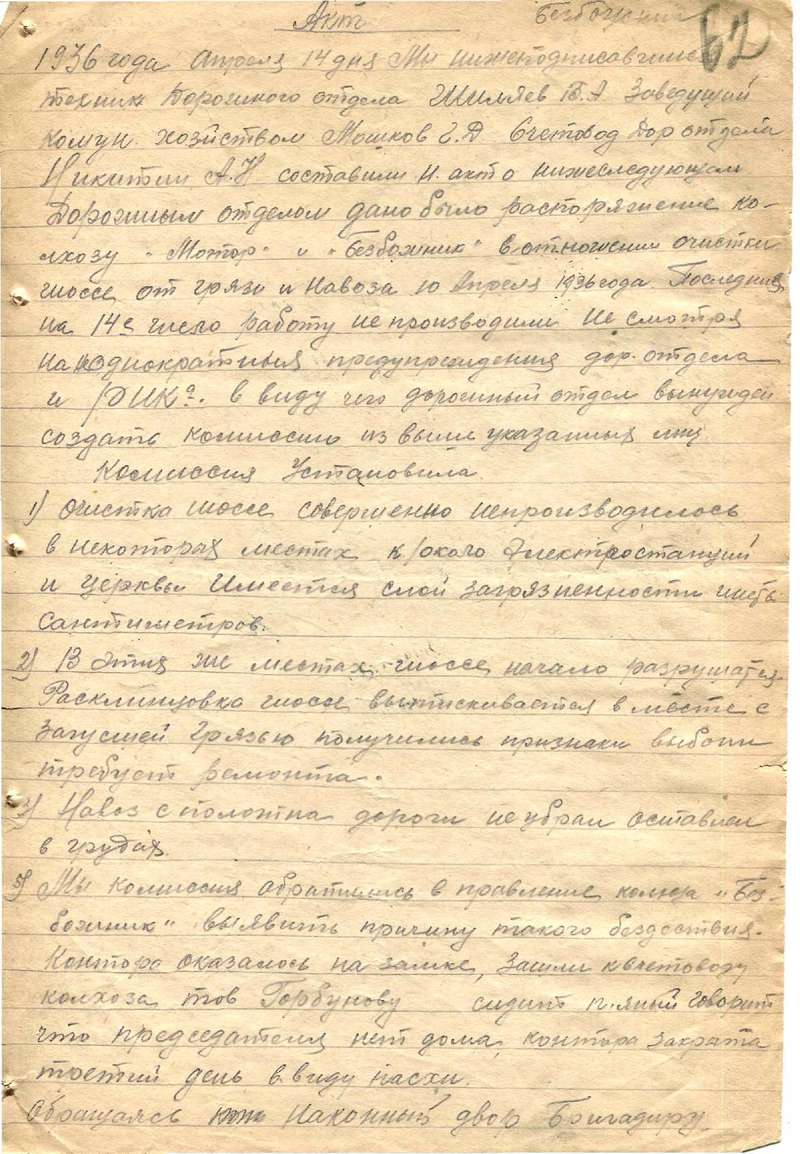 Акт Безбожник 62
1936 года Апреля 14 дня Мы нижеподписавшиес
техник Дорожного отдела Шиляев В.А Заведущий
комун. хозяйством Мошков Г.Д Счетовод Дор отдела
Никитин А.Н составили н. акт о нижеследующем
Дорожным отделом дано было распоряжение ко-
лхозу „Мотор" и „Безбожник" в отношении очистки
шоссе от грязи и навоза 10 Апреля 1936 года. Последние
на 14е число работу не производили не смотря
на неоднократныя предупреждения дор. отдела
и РИКа. в виду чего дорожный отдел вынужден
создать комиссию из выше указанных лиц
Комиссия Установила.
1) Очистка шоссе совершенно непроизводилось
в некоторых местах к/около Электростанций
и церквы Имеется слой загрязненности шесть
сантиметров.
2) В этих же местах шоссе начало разрушатся
Расклинцовка шоссе выпискивается в место с
загусшей грязью получились признаки выбоин
требует ремонта.
Навоз с полотна дороги не убран оставлен
в грудах.
Мы комиссия обратились в правление колхоза „Без-
божник" выявить причину такого бездествия.
Контора оказалось на замке, Зашли к счетоводу
колхоза тов Горбунову сидит п.яный говорит
что председателя нет дома, контора закрата
третий день в виду пасхи.
Обращаясь на конный двор Бригадиру